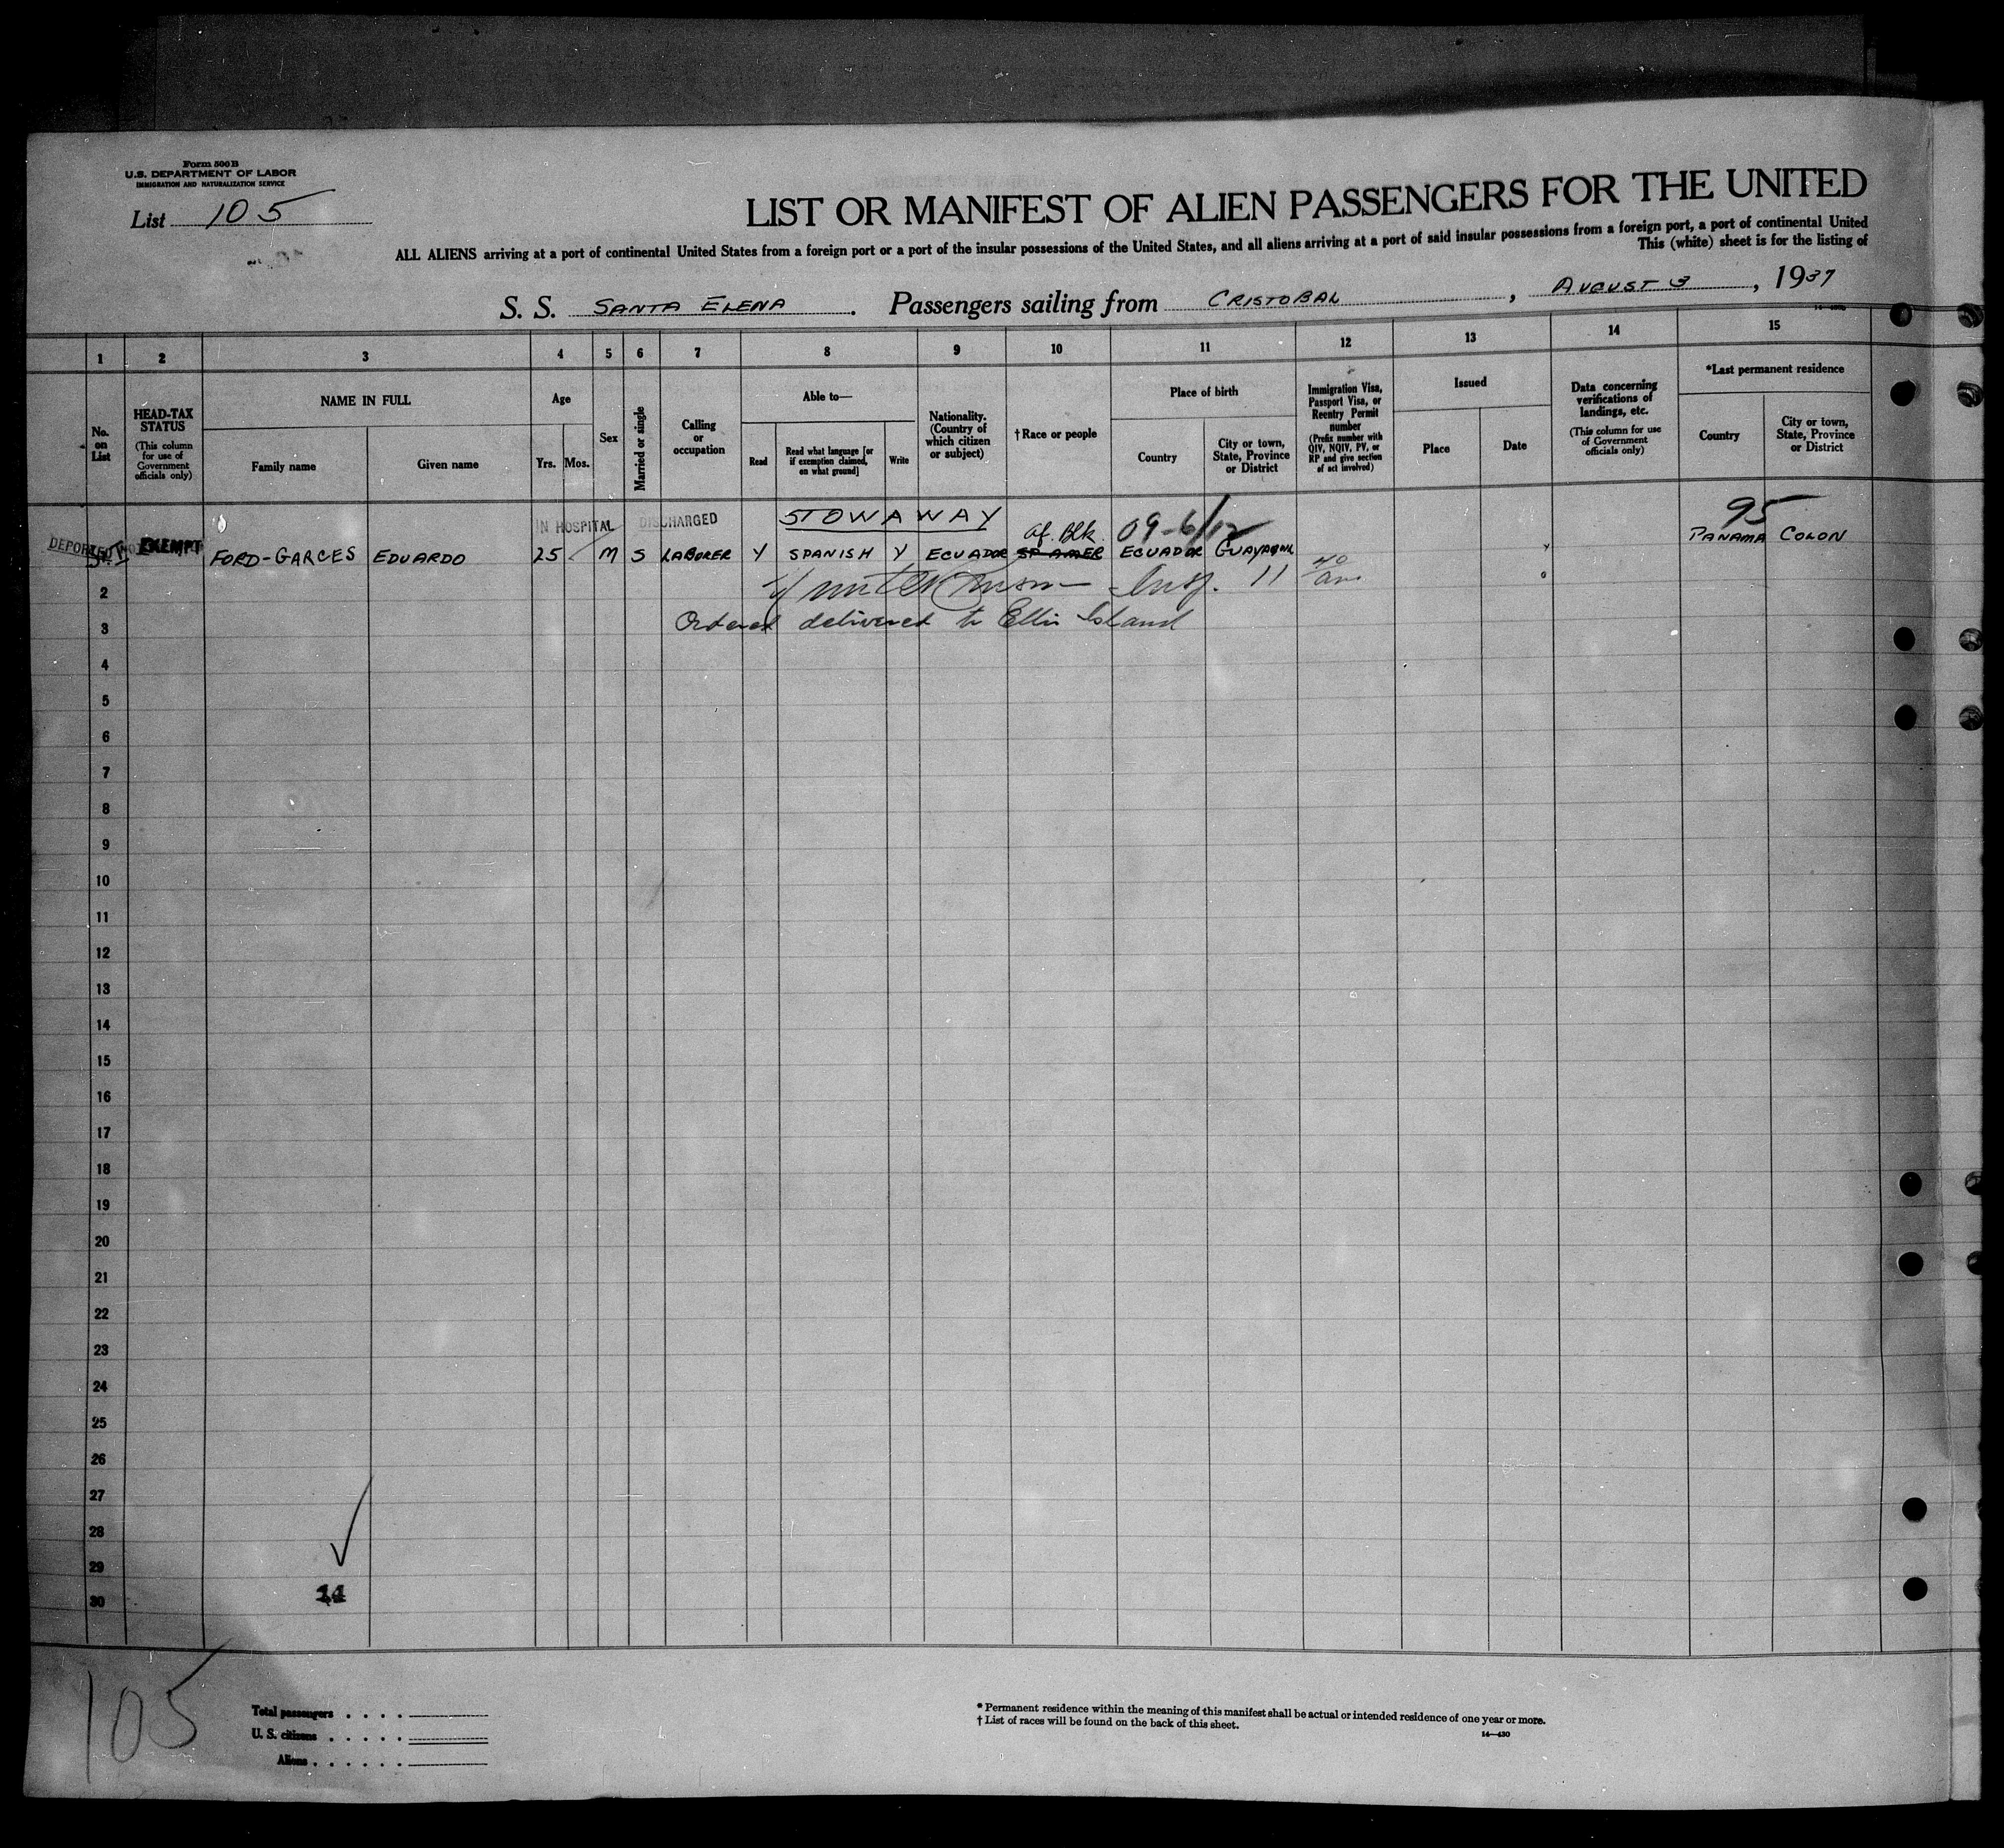 Form 500B
U.S. DEPARTMENT OF LABOR
IMMIGRATION AND NATURALIZATION SERVICE
List 105
LIST OR MANIFEST OF ALIEN PASSENGERS FOR THE UNITED
ALL ALIENS arriving at a port of continental United States from a foreign port or a port of the insular possessions of the United States, and all aliens arriving at a port of said insular possessions from a foreign port, a port of continental United
This (white) sheet is for the listing of
S. S. SANTA ELENA . Passengers sailing from CRISTOBAL , AUGUST 3 , 1937
1 2 3 4 5 6 7 8 9 10 11 12 13 14 15
No. on List
HEAD-TAX STATUS
(This column for use of Government officials only)
NAME IN FULL
Family name
Given name
Age
Yrs. Mos.
Sex
Married or single
Calling or occupation
Able to—
Read
Read what language [or if exemption claimed, on what ground]
Write
Nationality. (Country of which citizen or subject)
† Race or people
Place of birth
Country
City or town, State, Province or District
Immigration Visa, Passport Visa, or Reentry Permit number
(Prefix number with QIV, NQIV, PV, or RP and give section of act involved)
Issued
Place
Date
Data concerning verifications of landings, etc.
(This column for use of Government officials only)
*Last permanent residence
Country
City or town, State, Province or District
IN HOSPITAL DISCHARGED STOWAWAY Af. Blk. 09-6/12 95
DEPORTED EXEMPT FORD-GARCES EDUARDO 25 M S LABORER Y SPANISH Y ECUADOR SP AMER ECUADOR GUAYAQUIL PANAMA COLON
2 Insp. 11
3 Ordered delivered to Ellis Island
4
5
6
7
8
9
10
11
12
13
14
15
16
17
18
19
20
21
22
23
24
25
26
27
28
29
30
105
Total passengers . . . .
U. S. citizens . . . . .
Aliens . . . . . .
* Permanent residence within the meaning of this manifest shall be actual or intended residence of one year or more.
† List of races will be found on the back of this sheet.
14—430